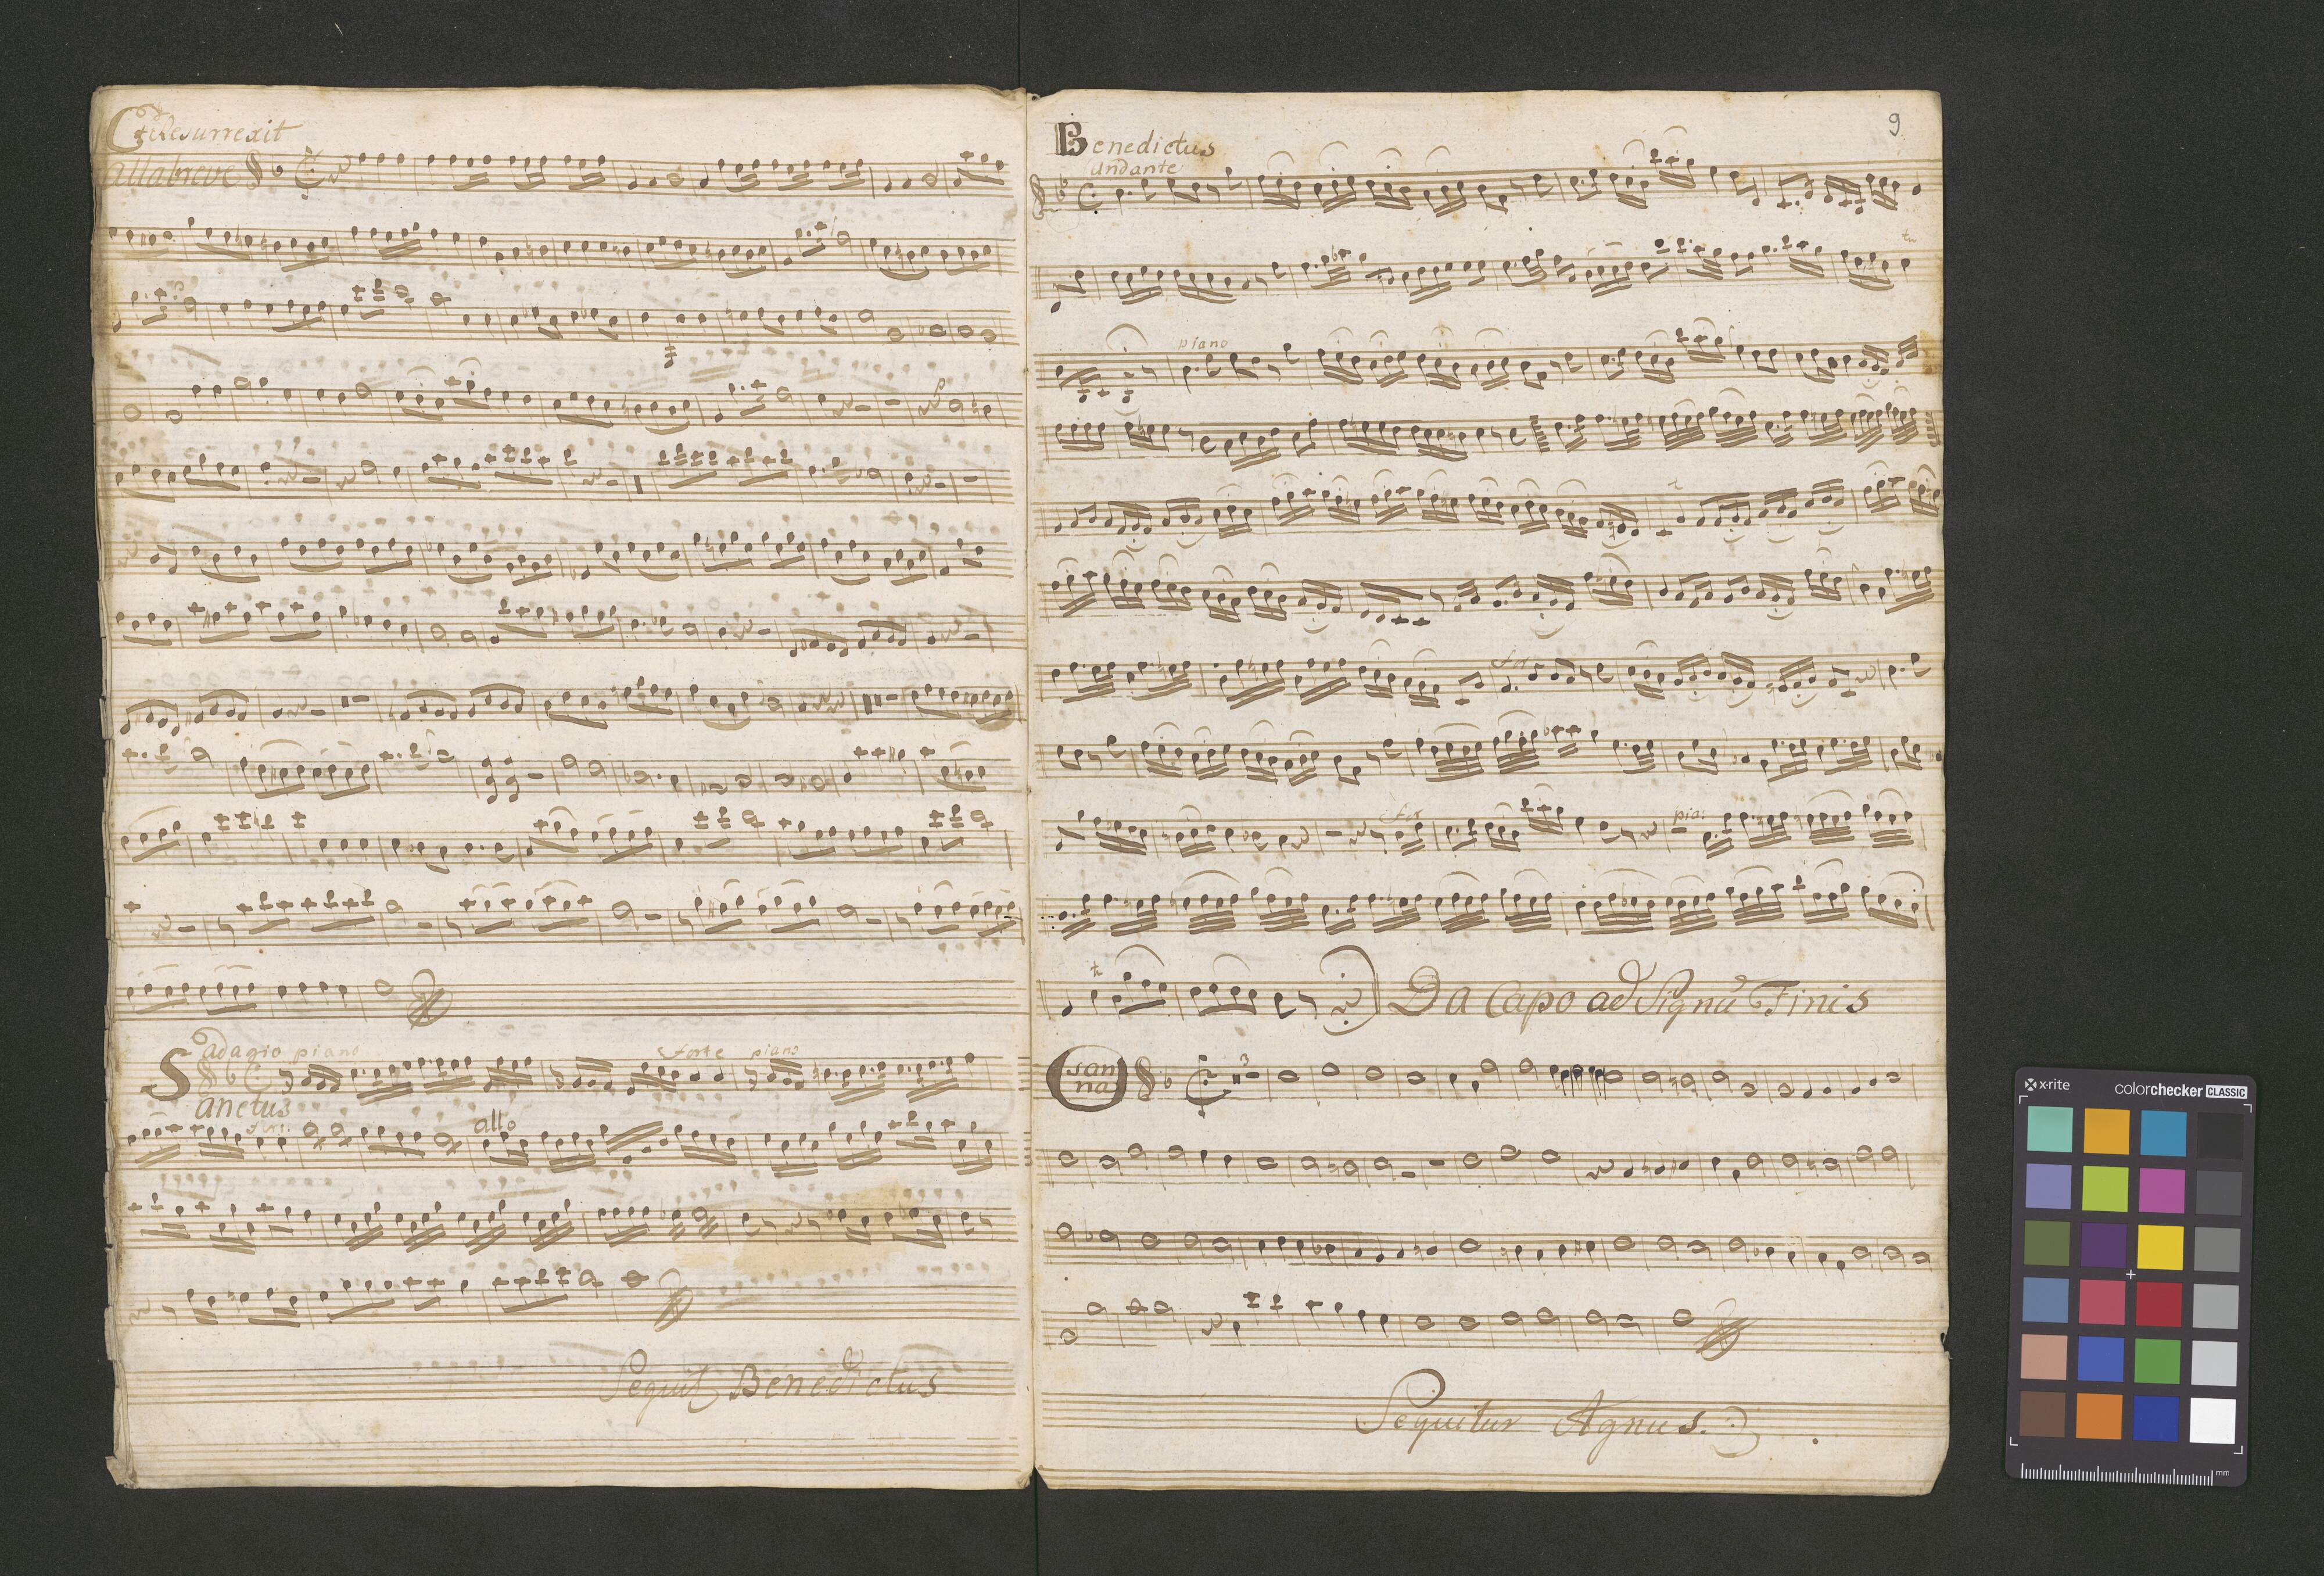 Et Resurrexit
allabreve
adagio piano forte piano
Sanctus
for:
allo
Sequit Benedictus
9
Benedictus
andante
tr
piano
for
for
pia:
tr
Da Capo ad Signũ Finis
Osanna
3
Sequitur Agnus.
x-rite
colorchecker CLASSIC
mm